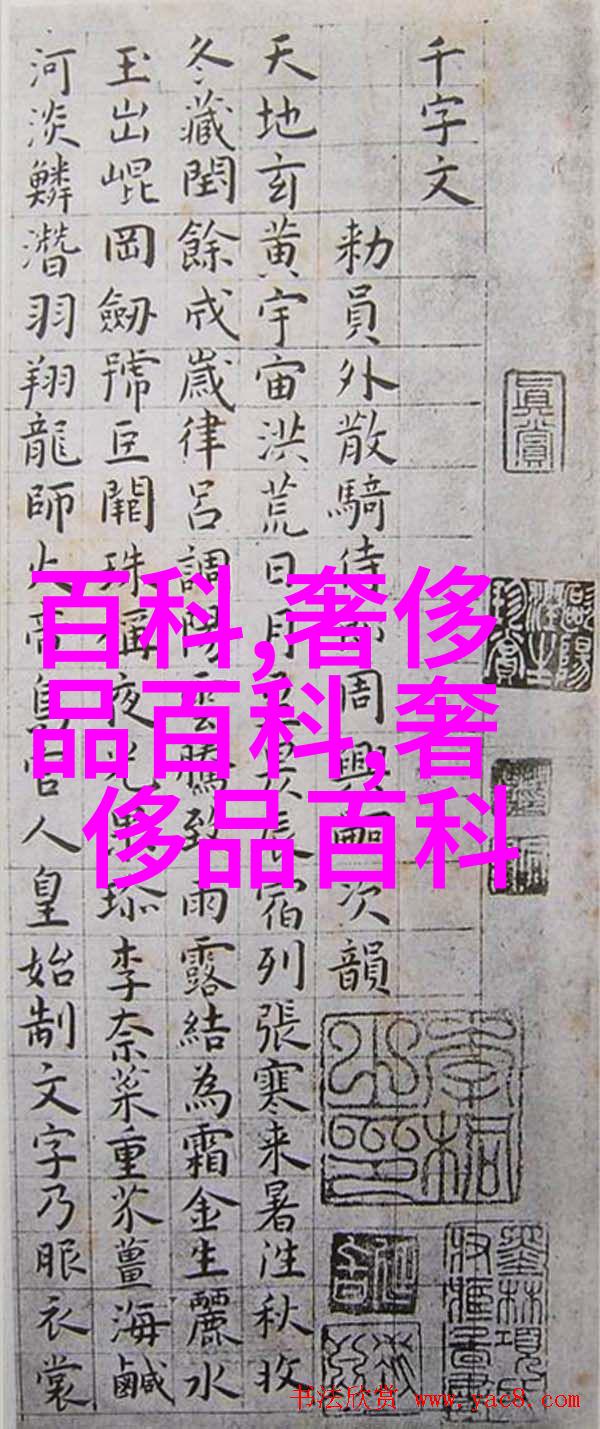 千字文
勑員外散騎侍郎周興嗣次韻
天地玄黃宇宙洪荒日月盈昃辰宿列張寒来暑往秋收
冬藏閏餘成歲律吕調陽雲騰致雨露結為霜金生麗水
玉出崐岡劒號巨闕珠稱夜光果珎李柰菜重芥薑海鹹
河淡鱗潛羽翔龍師火帝鳥官人皇始制文字乃服衣裳
眞賞
百科,奢侈
品百科,奢
侈品百科
书法欣赏 www.yac8.com